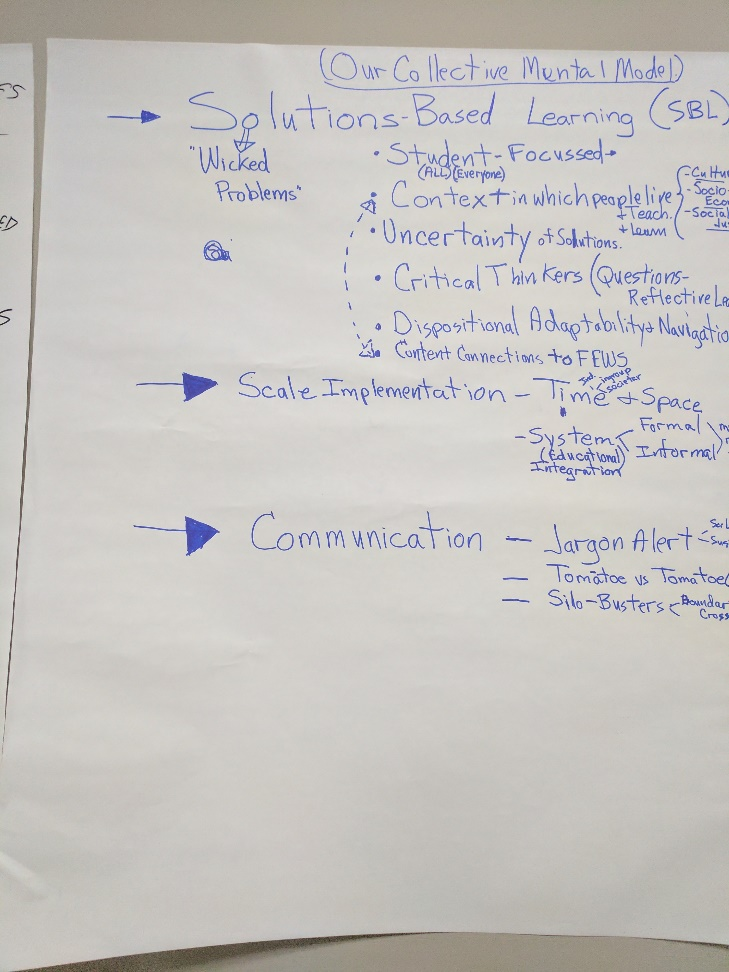 (Our Collective Mental Model)
Solutions-Based Learning (SBL)
"Wicked
Problems"
• Student-Focussed
(ALL) (Everyone)
• Context in which people live
+ Teach.
+ Learn
- Socio
- Social
• Uncertainty of Solutions.
• Critical Thinkers (Questions-
Reflective
• Dispositional Adaptability + Navigatio
• Content Connections to FEWS
Scale Implementation - Time + Space
Ind. ingroup
- System
Formal
Informal
(Educational)
Integration
Communication - Jargon Alert
- Tomātoe vs Tomatoe
- Silo-Busters < Boundar
Cross